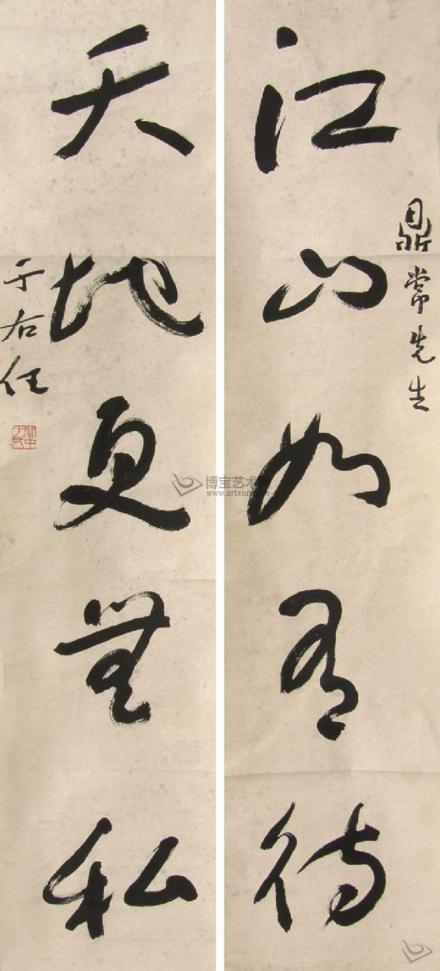 江山如有待
鼎常先生
天地更無私
于右任
博宝艺术
www.artxun